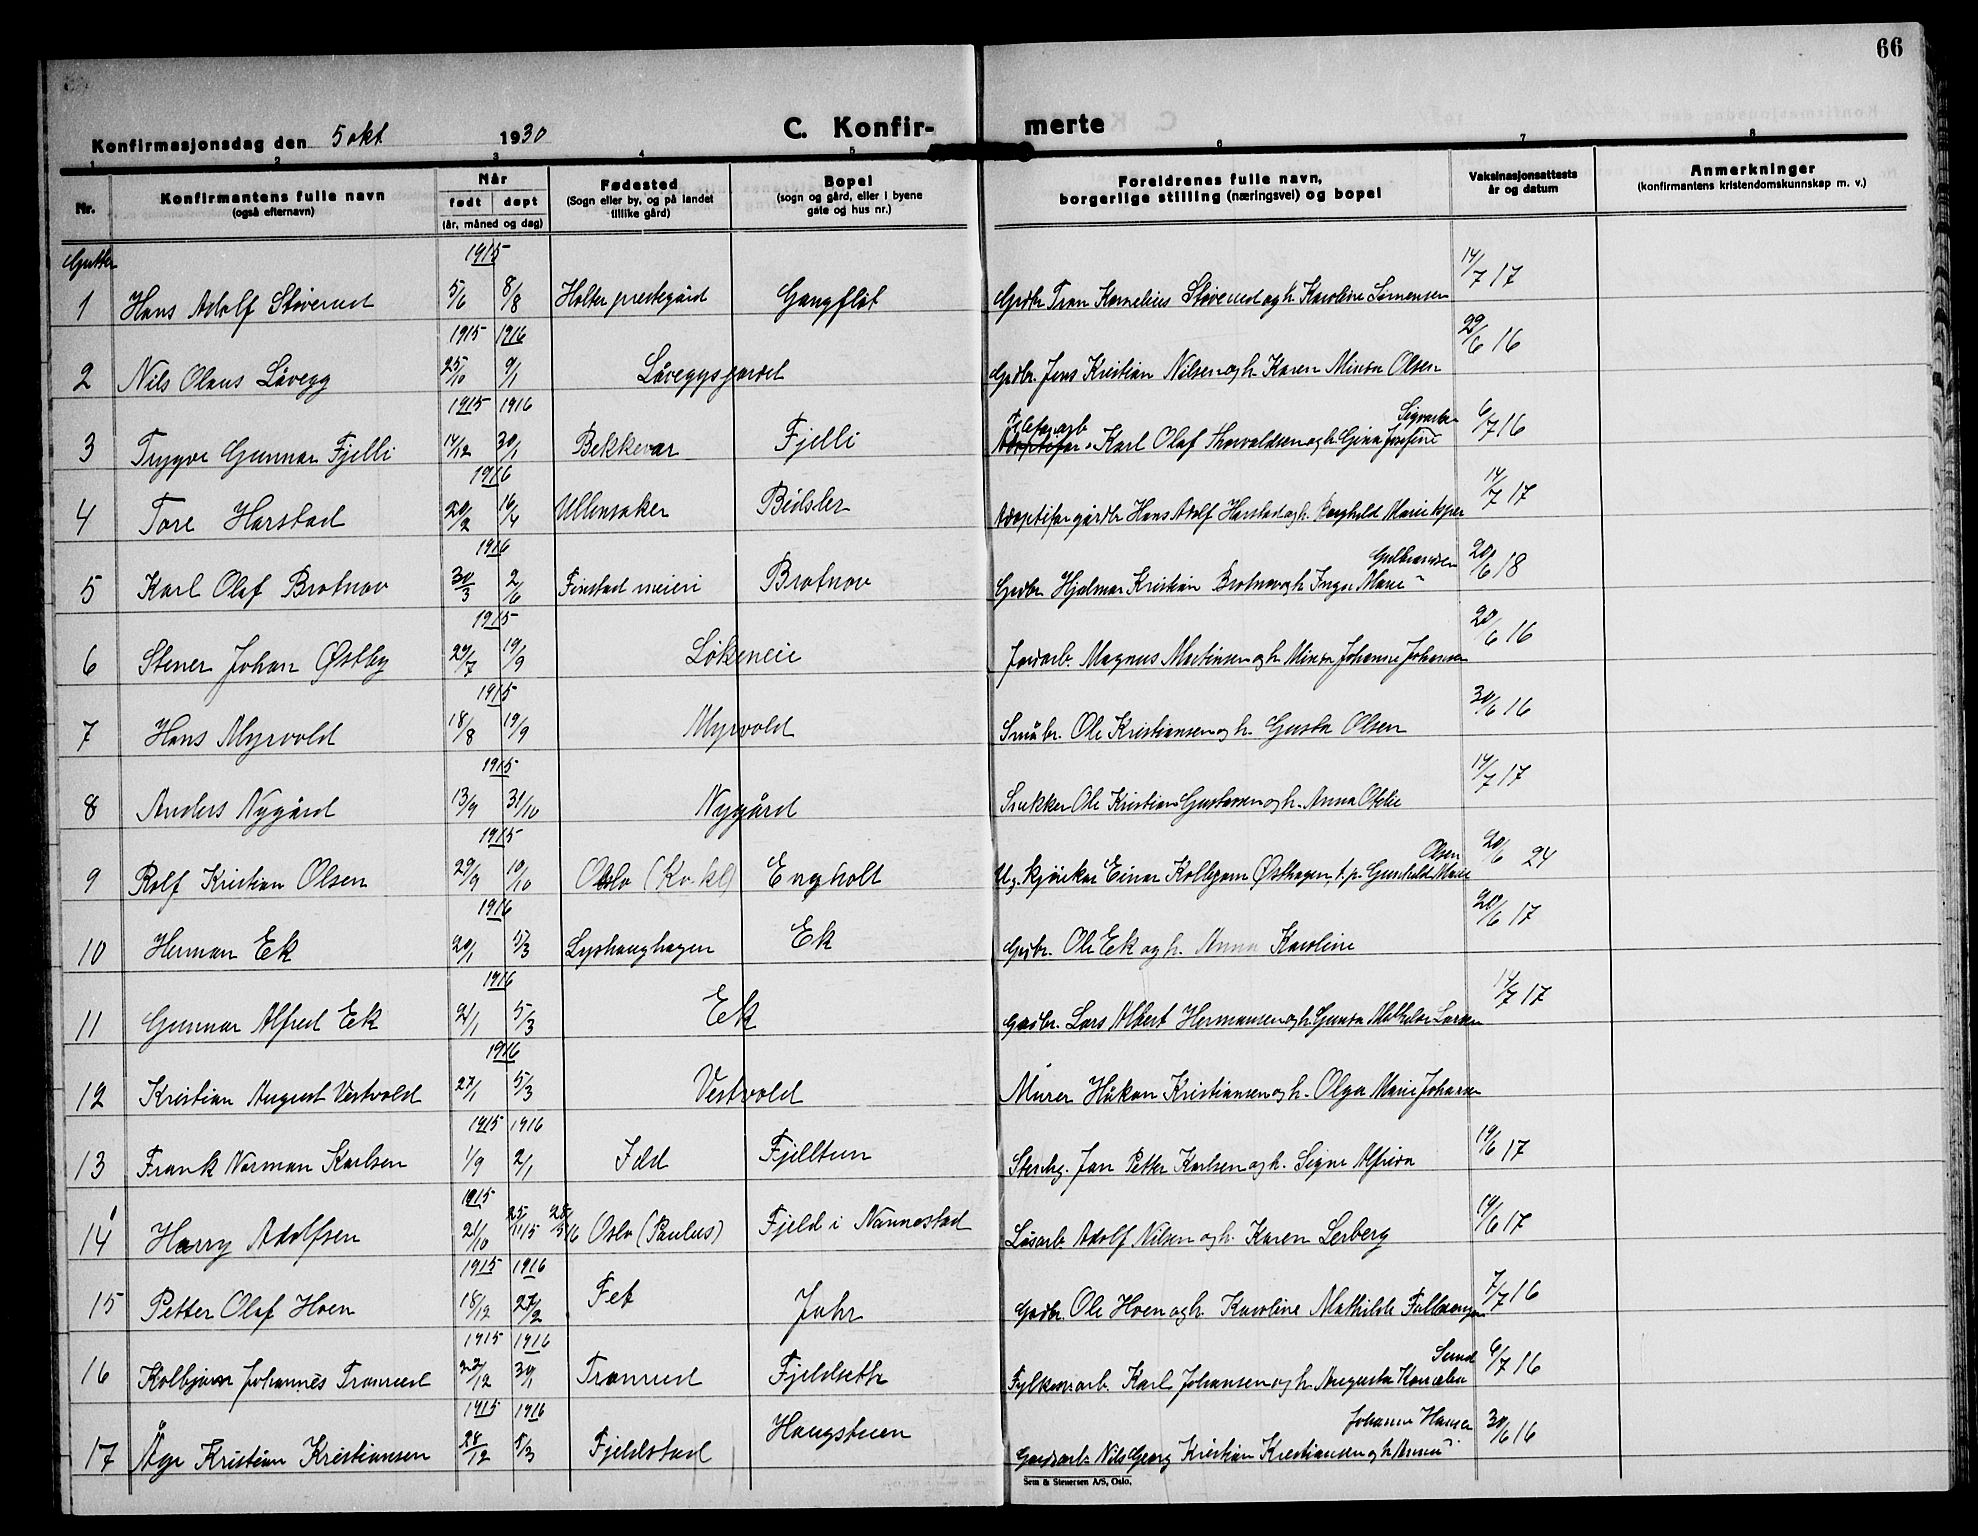 66
Konfirmasjonsdag den 5 okt. 1930
C. Konfir-
merte
1 2 3 4 5 6 7 8
Nr.
Konfirmantens fulle navn
(også efternavn)
Når
født døpt
(år, måned og dag)
Fødested
(Sogn eller by, og på landet
tillike gård)
Bopel
(sogn og gård, eller i byene
gate og hus nr.)
Foreldrenes fulle navn,
borgerlige stilling (næringsvei) og bopel
Vaksinasjonsattests
år og datum
Anmerkninger
(konfirmantens kristendomskunnskap m. v.)
Gutter
1915
1 Hans Adolf Støverud 5/6 8/8 Holter prestegård Gangflöt Grdbr. Kornelius Støverud og h. Karoline Sørensen 14/7 17
1915 1916
2 Nils Olaus Låvegg 25/10 9/1 Låveggsjordet Grdbr. Jens Kristian Nilsen og h. Karen Minda Olsen 29/6 16
1915 1916
3 Trygve Gunnar Fjelli 14/12 30/1 Bekkevar Fjelli Karl Olaf Thorvaldsen og h. Gina Josefine 6/7 16
1916
4 Tore Harstad 20/2 16/4 Ullensaker Bidsler Adoptifar gårdbr Hans Adolf Harstad og h. Ragnhild Marie 14/7 17
1916
Gulbrandsen
5 Karl Olaf Brotnov 30/3 2/6 Finstad meieri Brotnov Grdbr. Hjalmar Kristian Brotnov og h. Inga Marie " 20/6 18
1915
6 Stener Johan Østby 29/7 19/9 Lökeneie Jordarb. Magnus Martinsen og h. Minda Johanne Johansen 20/6 16
1915
7 Hans Myrvold 18/8 19/9 Myrvold Småbr. Ole Kristiansen og h. Gusta Olsen 30/6 16
1915
8 Anders Nygård 13/9 31/10 Nygård Snekker Ole Kristian Gustavsen og h. Anna Ofelie 14/7 17
1915
Olsen
9 Rolf Kristian Olsen 29/9 10/10 Oslo (Kv. kl) Engholt Einar Østhagen, t.p. Gunhild Marie 20/6 24
1916
10 Herman Ek 20/1 5/3 Lyshaughagen Ek Grdbr. Ole Ek og h. Anna Karoline 20/6 17
1916
11 Gunnar Alfred Ek 21/1 5/3 Ek Grdbr. Lars Albert Hermansen og h. Gunda Mathilde Larsen 14/7 17
1916
12 Kristian August Vestvold 27/1 5/3 Vestvold Murer Håkon Kristiansen og h. Olga Marie Johansen
1915 1916
13 Frank Norman Karlsen 1/9 2/1 Idd Fjelltun Stenhg. Jan Petter Karlsen og h. Signe Alfrida 19/6 17
1915
14 Harry Adolfsen 21/10 Oslo (Paulus) Fjeld i Nannestad Løsarb. Adolf Nilsen og h. Karen Lerberg 19/6 17
1915 1916
15 Petter Olaf Hoen 18/12 27/2 Fet Jahr Grdbr. Ole Hoen og h. Karoline Mathilde 7/7 16
1915 1916
Sund
16 Kolbjørn Johannes Tranrud 22/12 30/1 Tranrud Fjeldseth Karl Johansen og h. Augusta 6/7 16
1915 1916
Johanne Hansen
17 Åge Kristian Kristiansen 28/12 5/3 Fjeldstad Haugstuen Gårdsarb. Nils Georg Kristian Kristiansen og h. Anna " 30/6 16
Sem & Stenersen A/S, Oslo.